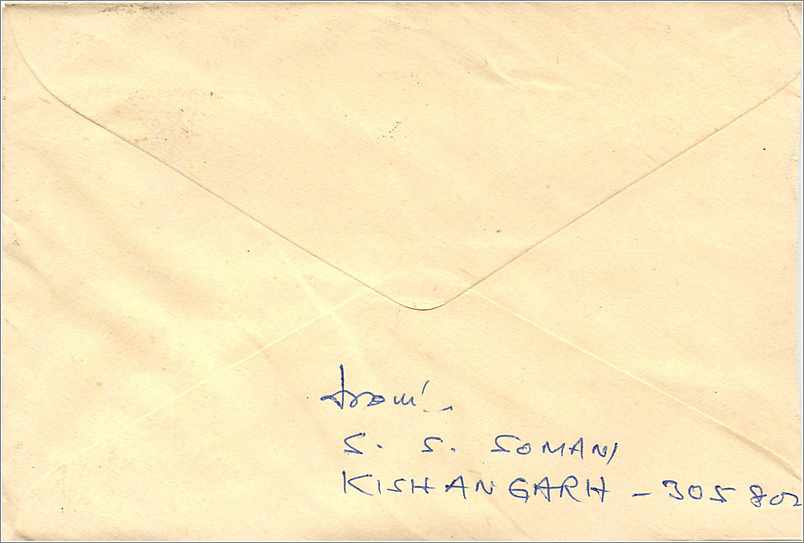 from:-
S. S. SOMANI
KISHANGARH - 305 802